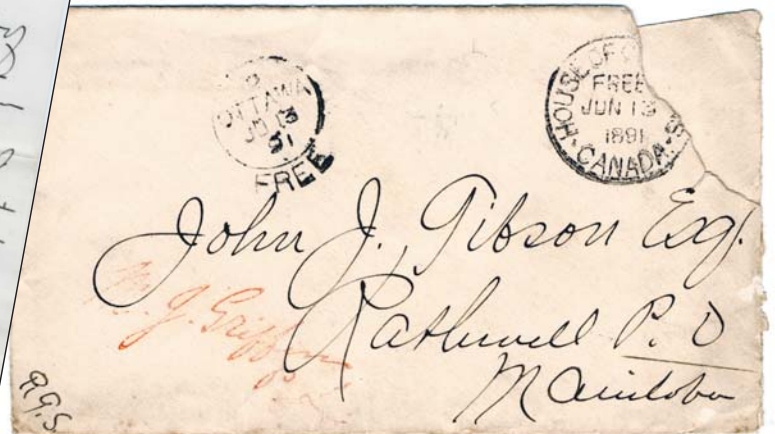 OTTAWA
JU 13
91
FREE
HOUSE OF
FREE
JUN 13
1891
CANADA
John J. Gibson Esq.
Rathwell P. O
Manitoba
J. Griffin
R.G.S.